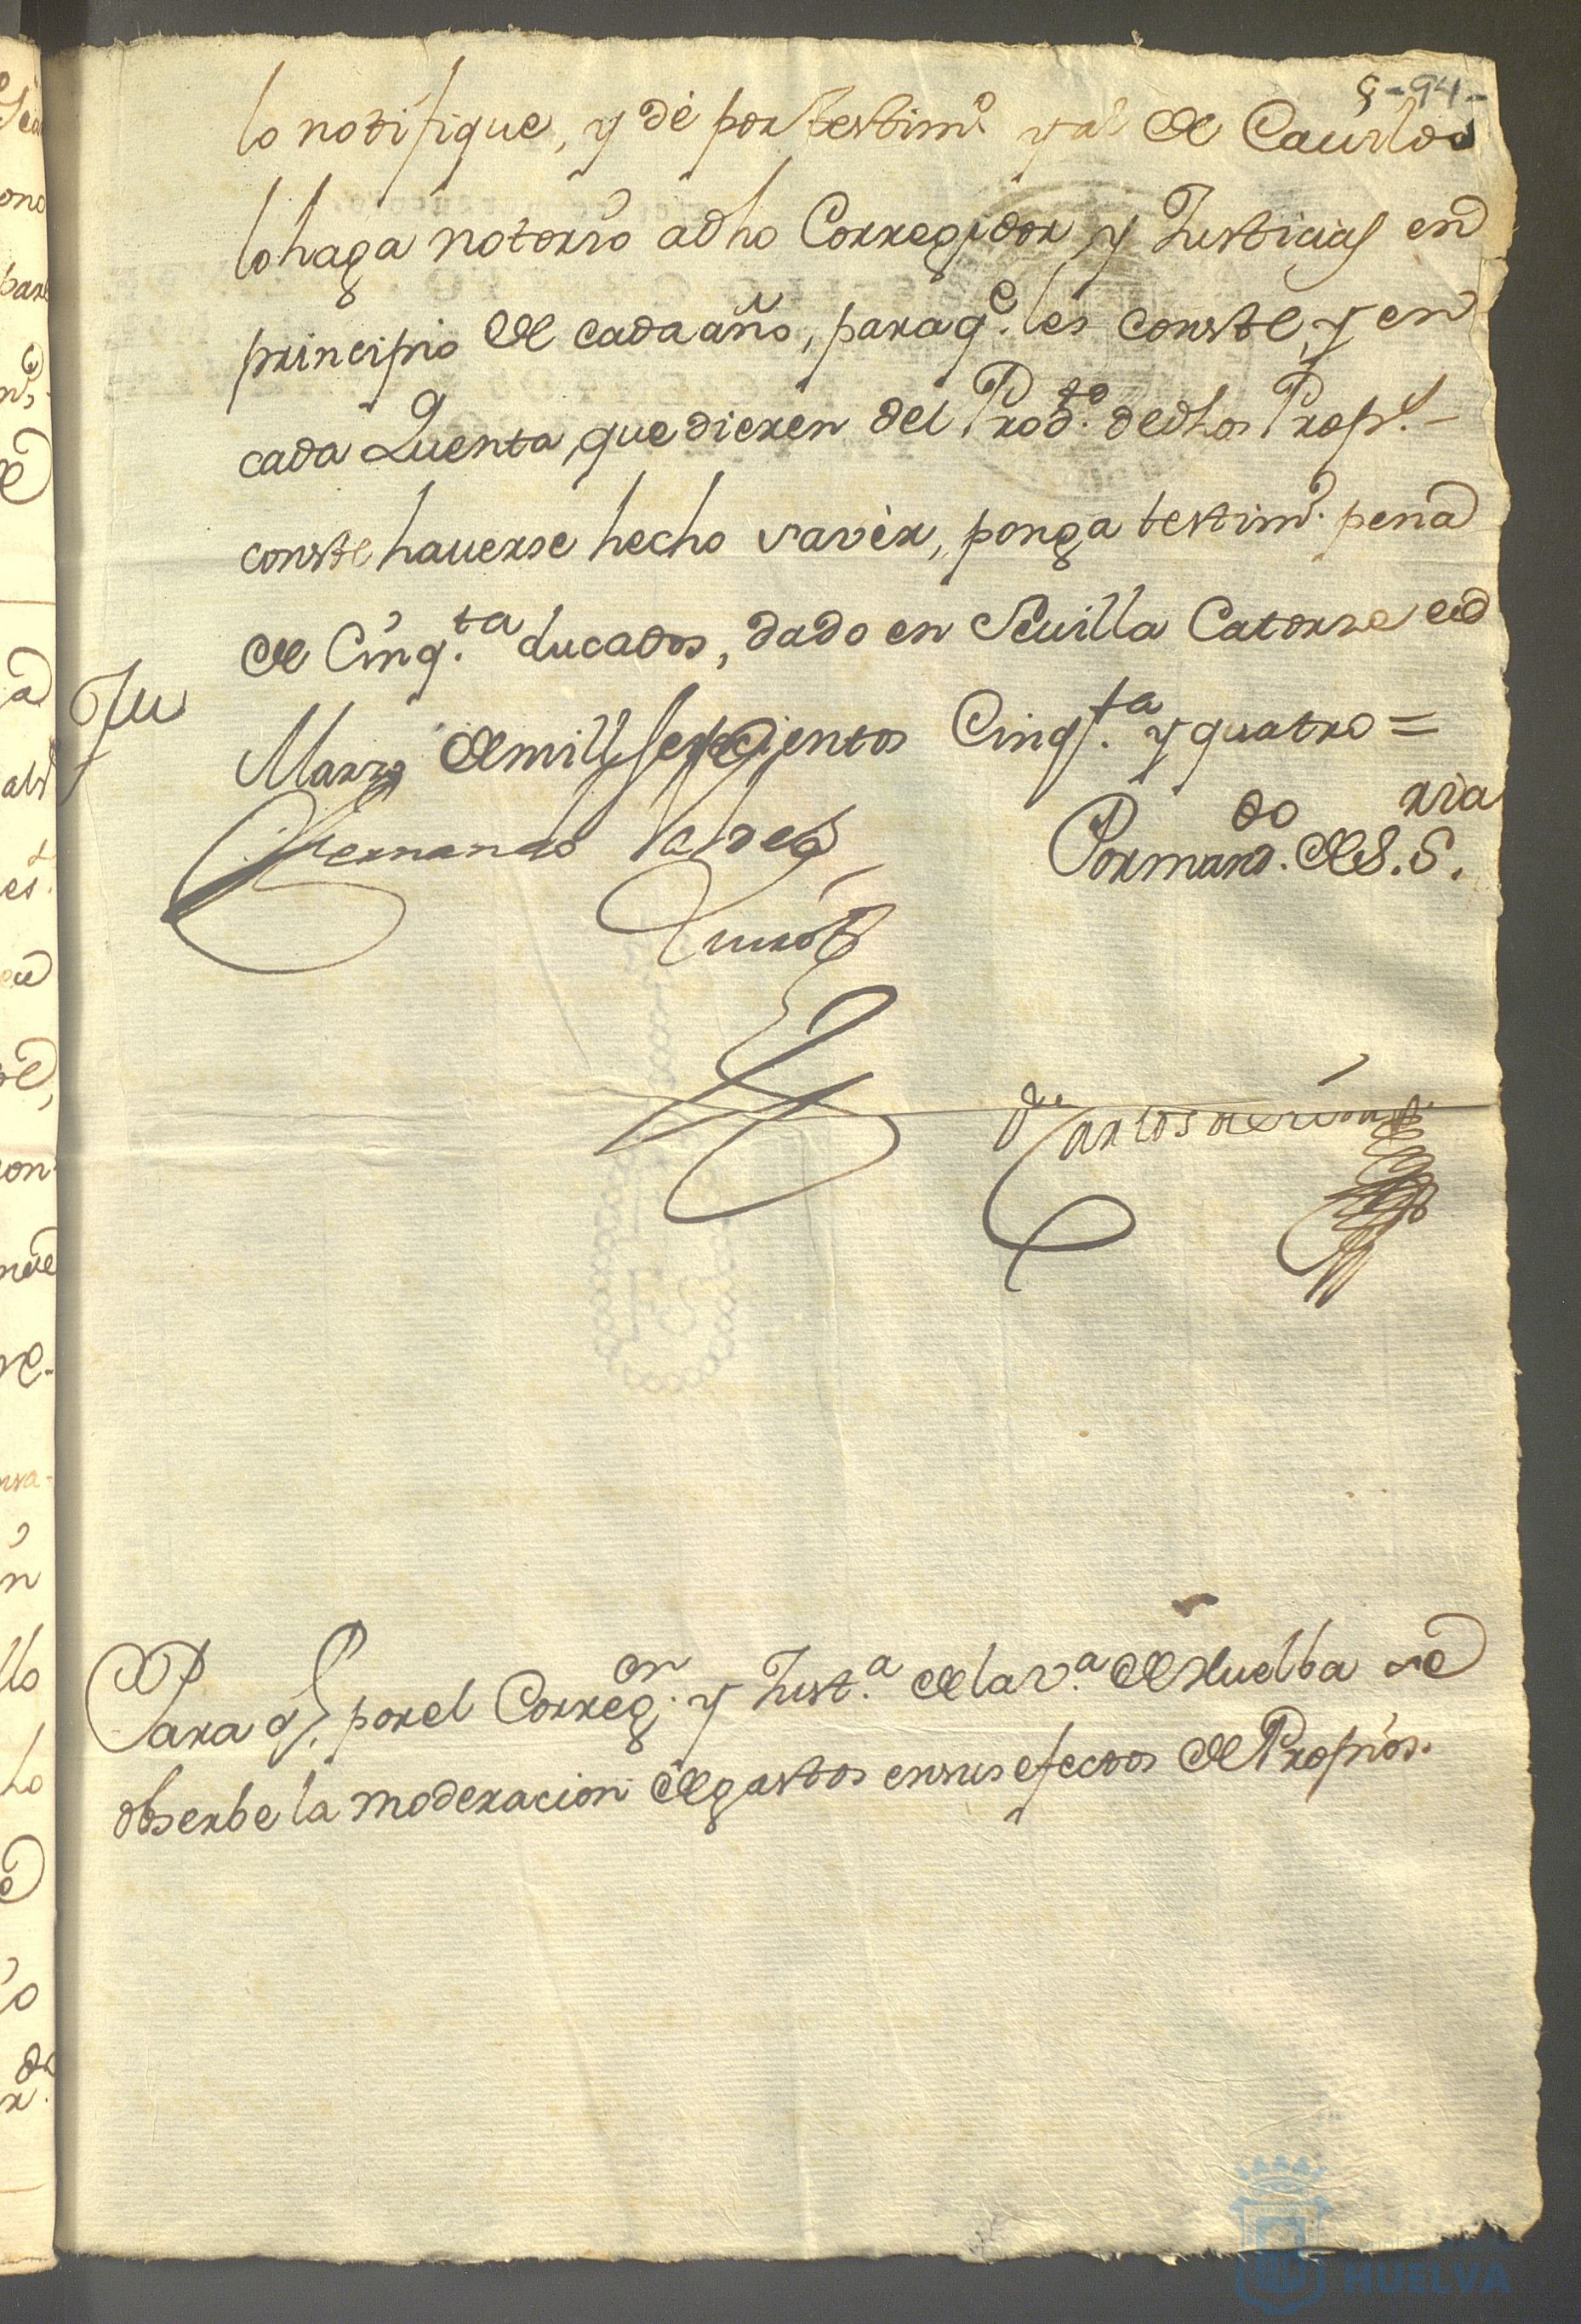 8-94-
lo notifique, y dè por testimº. y al de Cauildo
lo haga notorio a dho Corregidor y Justicias en
principio de cada año, para qe. les conste, y en
cada Quenta, que dieren del Prodto. de dhos Props.
conste hauerse hecho savèr, ponga testimº. pena
de Cinqta. ducados, dado en Seuilla Catorze de
Marzo de mill Setezientos Cinqta. y quatro=
Fernando Valdes
Quirós
Por mando. de S. Sria.
Dn Carlos
Para qe. por el Corregor. y Justa. de la va. de Huelba se
obserbe la moderacion de gastos en sus efectos de Propios.
HUELVA